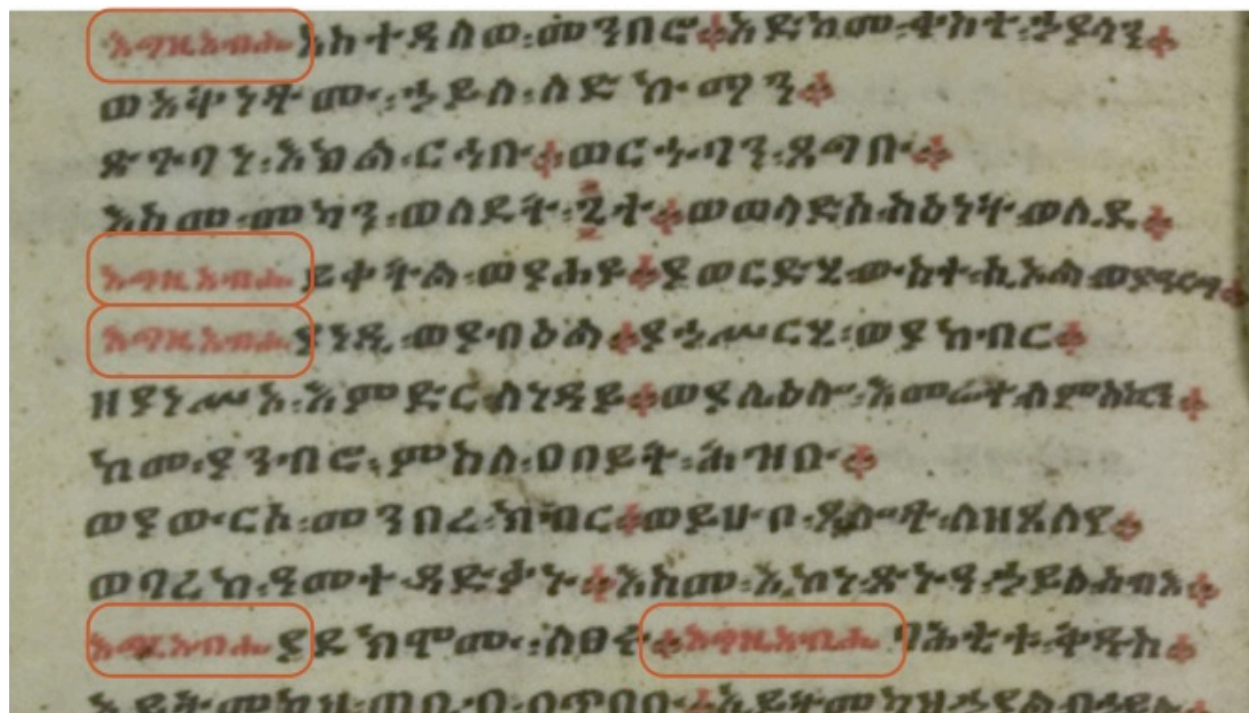 እግዚአብሔር አስተዳለወ፡መንበሮ። አድከመ፡ቀስተ፡ኃያላን።
ወአቅነቶሙ፡ኃይለ፡ለድኩማን።
ጽጉባነ፡እክል፡ርኅቡ። ወርኁባን፡ጸግቡ።
እስመ፡መካን፡ወለደት፡፯ተ። ወወላድሰ፡ስዕነት፡ወሊደ።
እግዚአብሔር ይቀትል፡ወያሐዩ። ያወርድሂ፡ውስተ፡ሲኦል፡ወያዐርግ።
እግዚአብሔር ያነዲ፡ወያብዕል። ያኀሥርሂ፡ወያከብር።
ዘያነሥእ፡እምድር፡ለነዳይ። ወያሌዕሎ፡እመሬት፡ለምስኪን።
ከመ፡ያንብሮ፡ምስለ፡ዐበይተ፡ሕዝቡ።
ወያወርስ፡መንበረ፡ክብር። ወይሁብ፡ጸሎተ፡ለዘጸለየ።
ወባረከ፡ዓመተ፡ጻድቃን። እስመ፡ኢኮነ፡ጽኑዓ፡ኃይለ፡ብእሲ።
እግዚአብሔር ያደክሞሙ፡ለፀሩ። እግዚአብሔር ባሕቲቱ፡ቅዱስ።